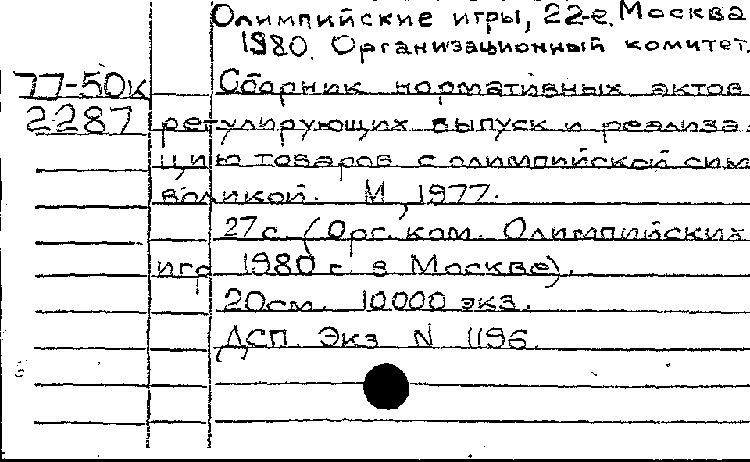 Олимпийские игры, 22-е. Москва
1980. Организационный комитет.
77-50к Сборник нормативных актов
2287 регулирующих выпуск и реализа-
цию товаров с олимпийской сим
воликой. М., 1977.
27с. (Орг. ком. Олимпийских
игр 1980 г. в Москве).
20см. 10000 экз.
ДСП. Экз N 1196.